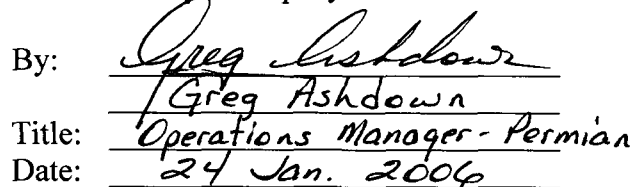 By: Greg Ashdown
Greg Ashdown
Title: Operations Manager - Permian
Date: 24 Jan. 2006